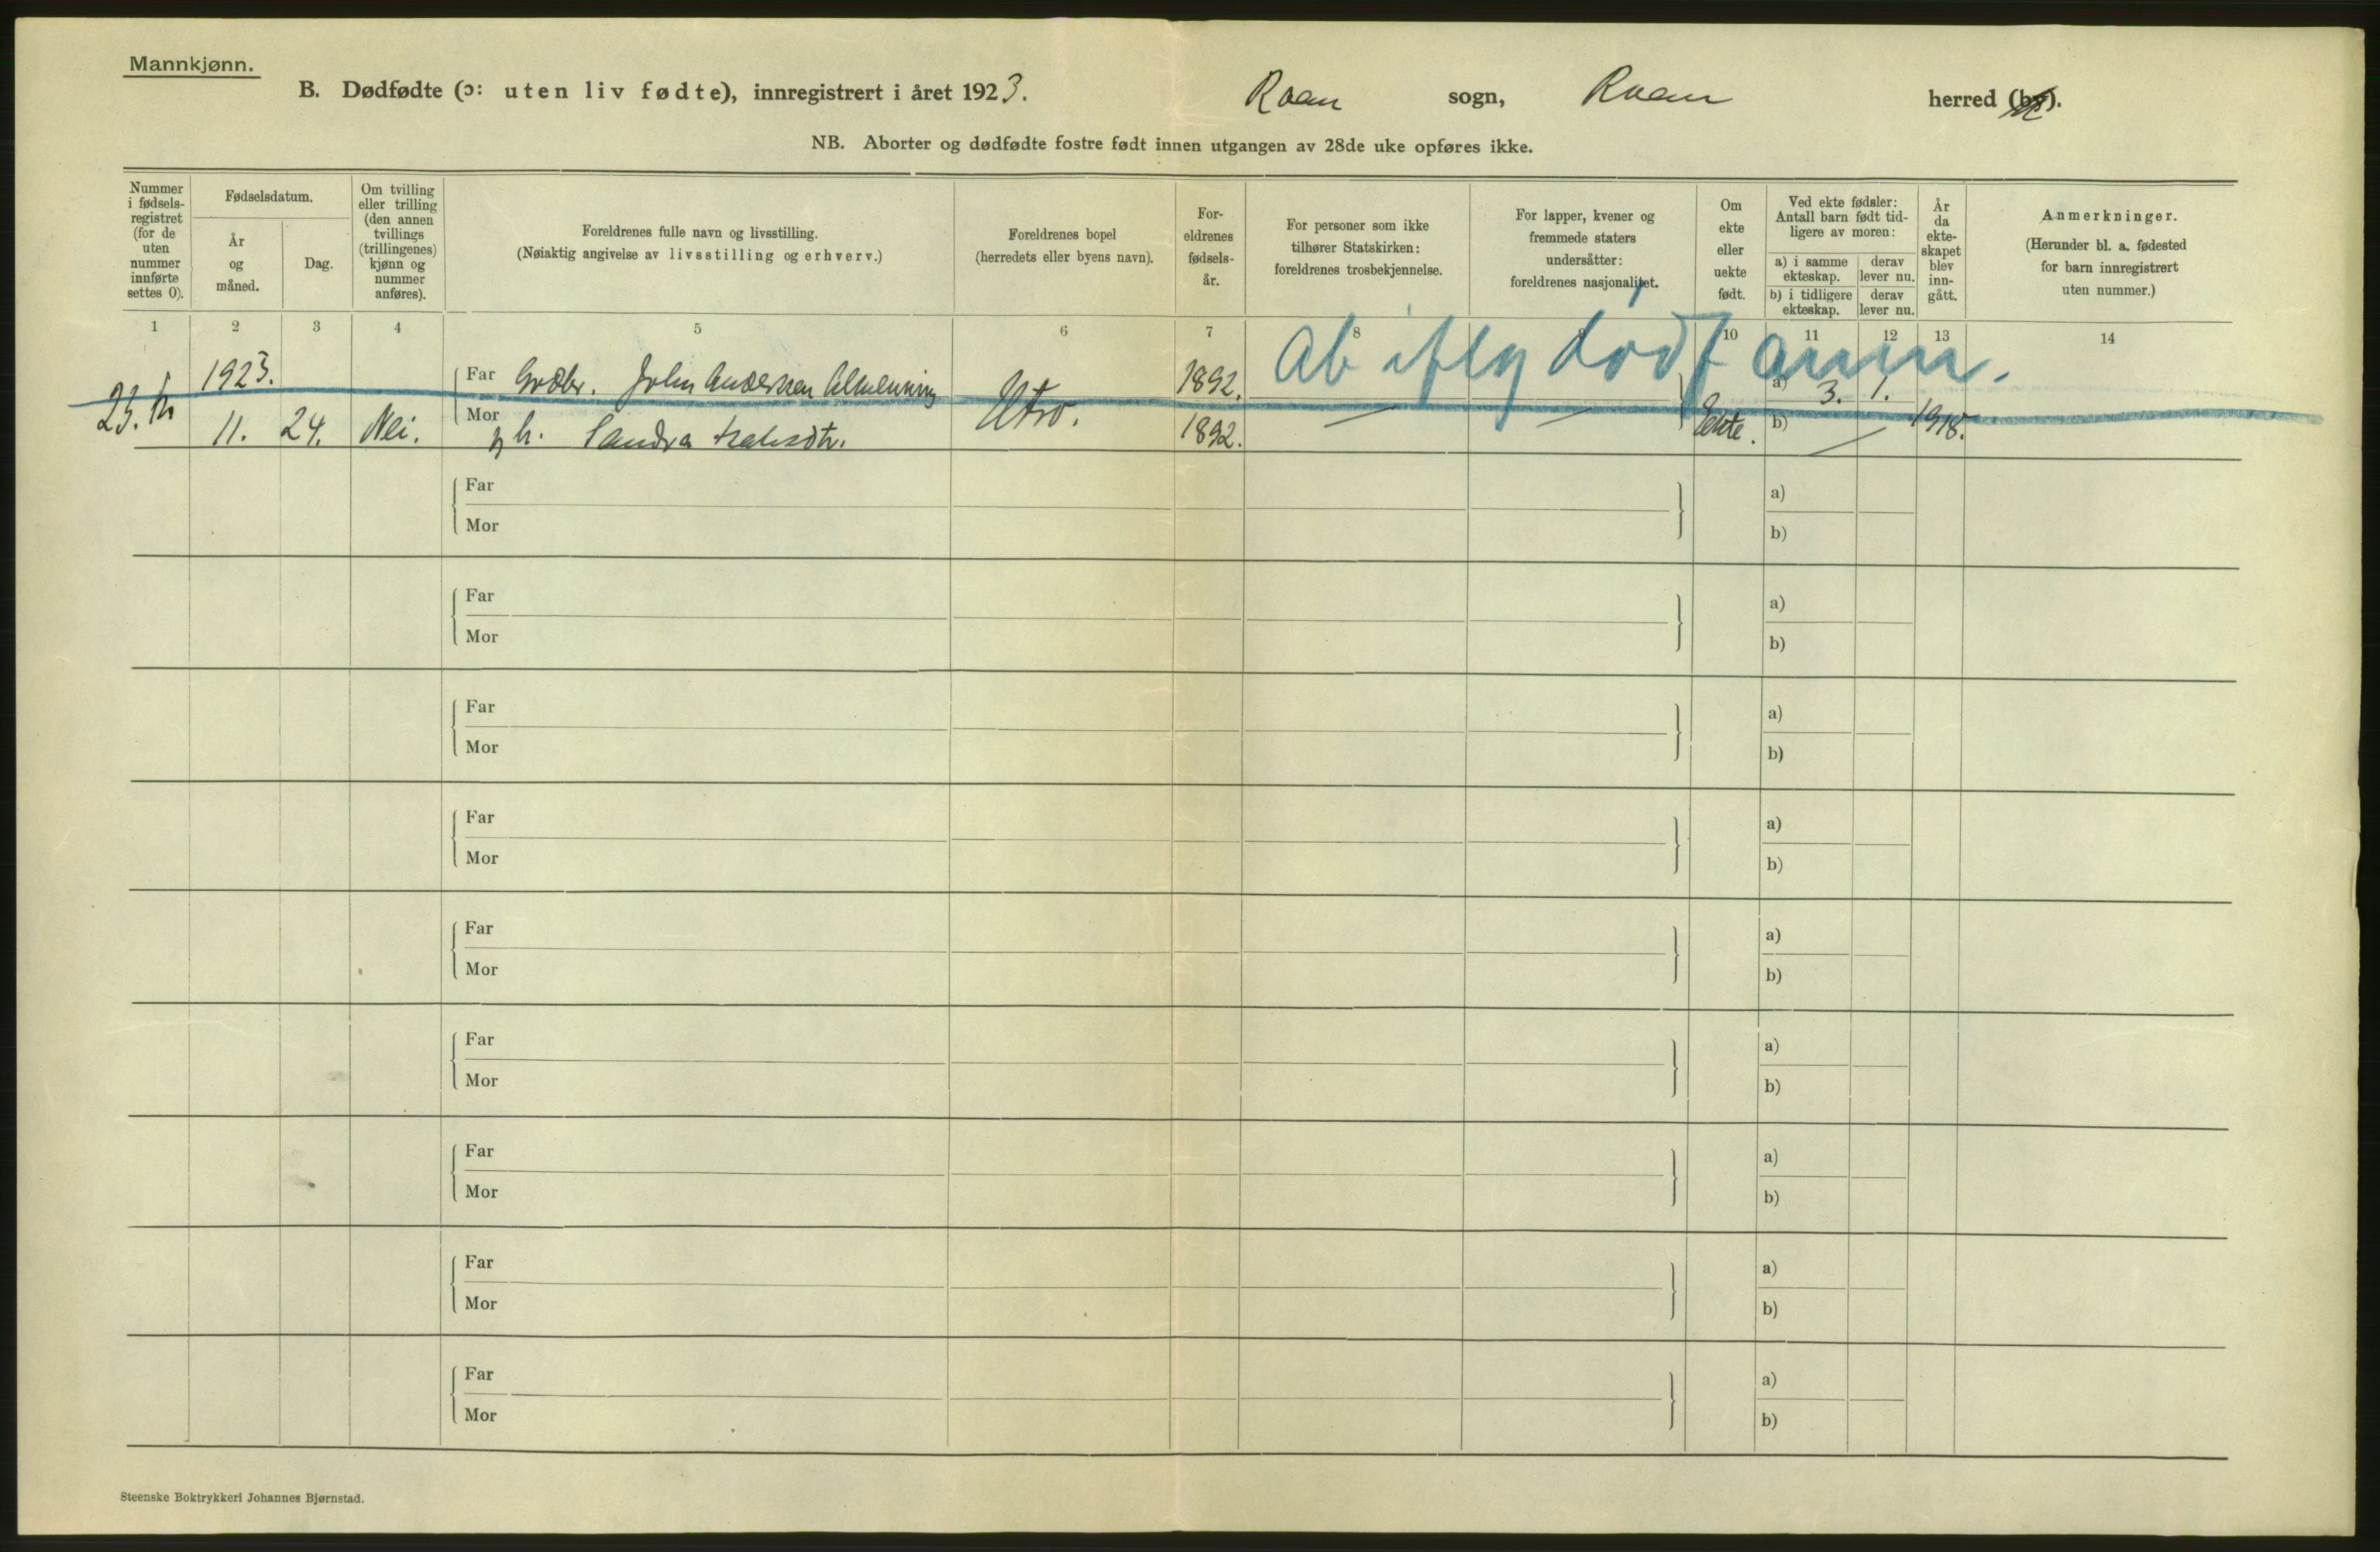 Mannkjønn.
B. Dødfødte (ɔ: uten liv fødte), innregistrert i året 1923. Roan sogn, Roan herred (by).
NB. Aborter og dødfødte fostre født innen utgangen av 28de uke opføres ikke.
Nummer i fødsels-registret (for de uten nummer innførte settes 0).
Fødselsdatum.
År og måned.
Dag.
Om tvilling eller trilling (den annen tvillings (trillingenes) kjønn og nummer anføres).
Foreldrenes fulle navn og livsstilling.
(Nøiaktig angivelse av livsstilling og erhverv.)
Foreldrenes bopel
(herredets eller byens navn).
For-eldrenes fødsels-år.
For personer som ikke tilhører Statskirken: foreldrenes trosbekjennelse.
For lapper, kvener og fremmede staters undersåtter: foreldrenes nasjonalitet.
Om ekte eller uekte født.
Ved ekte fødsler: Antall barn født tid-ligere av moren:
a) i samme ekteskap.
derav lever nu.
b) i tidligere ekteskap.
derav lever nu.
År da ekte-skapet blev inn-gått.
Anmerkninger.
(Herunder bl. a. fødested for barn innregistrert uten nummer.)
1 2 3 4 5 6 7 8 9 10 11 12 13 14
Ab iflg dødf anm.
1923. Far Grdbr. John Andersen Almenning 1892. a) 3. 1.
23. 11. 24. Nei. Mor h. Sandra Utro. 1892. Ekte. b) 1918.
Far a)
Mor b)
Far a)
Mor b)
Far a)
Mor b)
Far a)
Mor b)
Far a)
Mor b)
Far a)
Mor b)
Far a)
Mor b)
Far a)
Mor b)
Far a)
Mor b)
Steenske Boktrykkeri Johannes Bjørnstad.